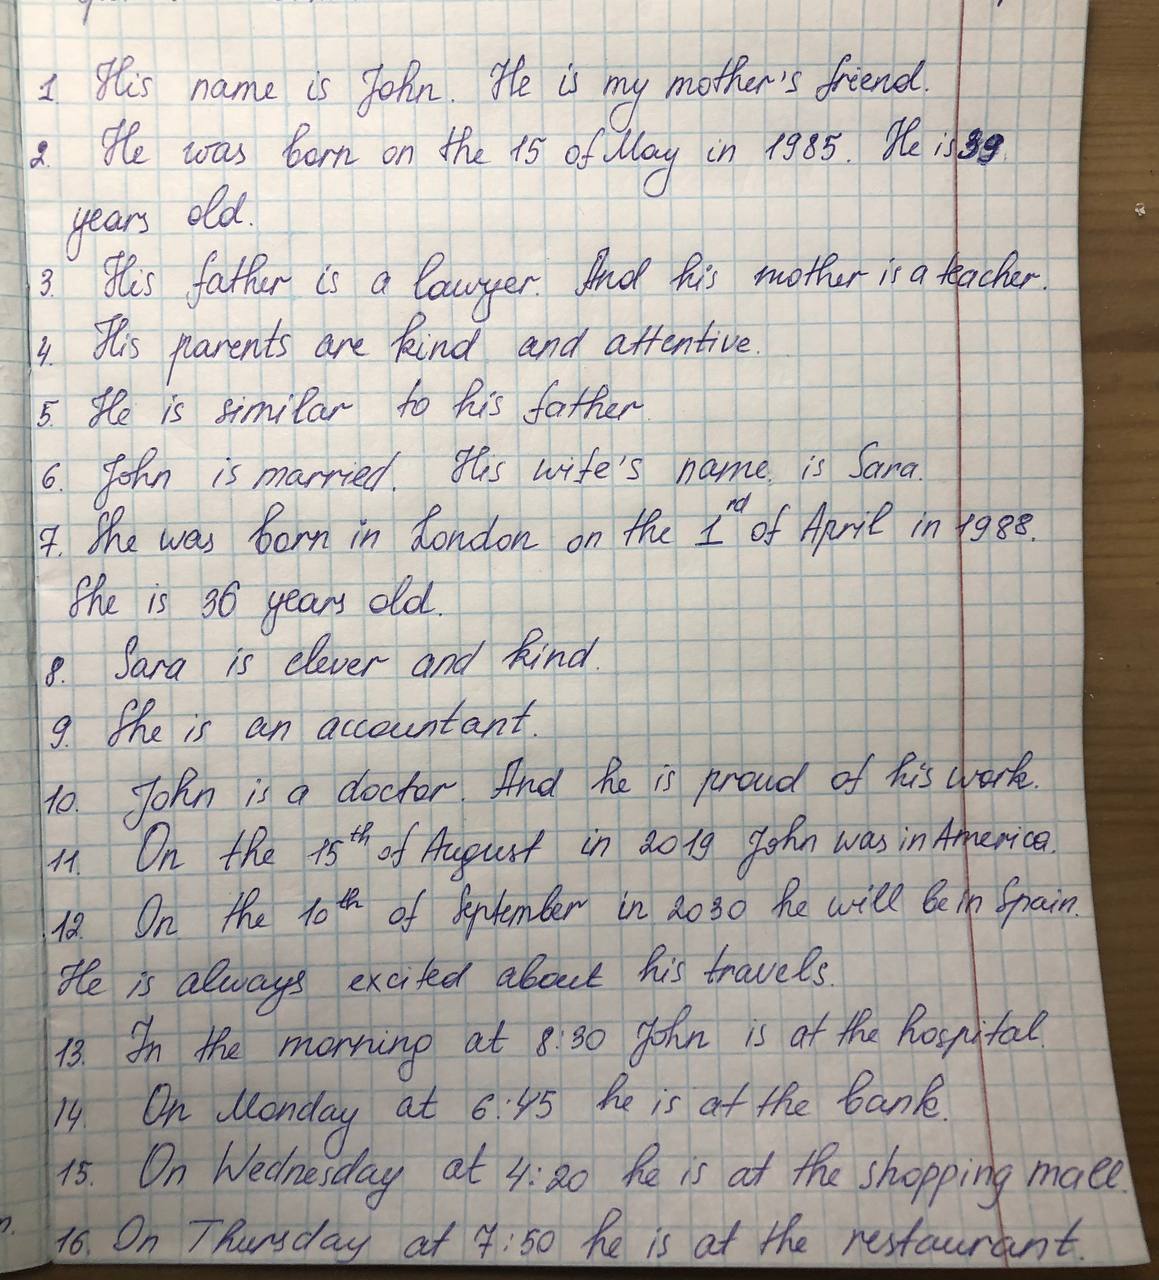 1. His name is John. He is my mother's friend.
2. He was born on the 15 of May in 1985. He is 39
years old.
3. His father is a lawyer. And his mother is a teacher.
4. His parents are kind and attentive.
5. He is similar to his father
6. John is married. His wife's name is Sara.
7. She was born in London on the 1rd of April in 1988.
She is 36 years old.
8. Sara is clever and kind.
9. She is an accountant.
10. John is a doctor. And he is proud of his work.
11. On the 15th of August in 2019 John was in America.
12. On the 10th of September in 2030 he will be in Spain.
He is always excited about his travels.
13. In the morning at 8:30 John is at the hospital.
14. On Monday at 6:45 he is at the bank.
15. On Wednesday at 4:20 he is at the shopping mall.
16. On Thursday at 7:50 he is at the restaurant.